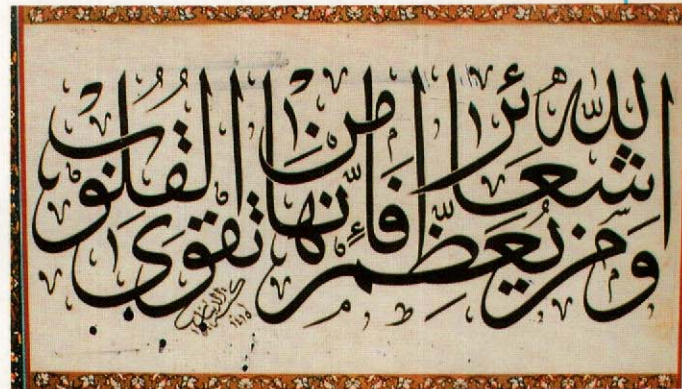 وَمَنْ يُعَظِّمْ شَعَائِرَ اللهِ فَإِنَّهَا مِنْ تَقْوَى الْقُلُوبِ